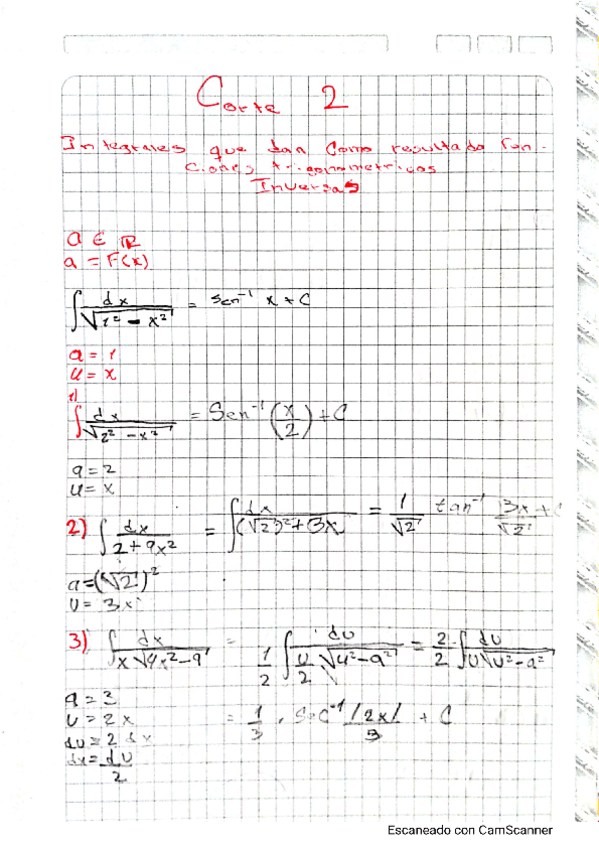 Corte 2
Integrales que dan Como resultado fun-
ciones trigonometricas
Inversas
a ∈ ℝ
a = F(x)
∫ dx / √(1² - x²) = sen⁻¹ x + C
a = 1
u = x
1)
∫ dx / √(2² - x²) = Sen⁻¹ (x/2) + C
a = 2
u = x
2) ∫ dx / (2 + 9x²) = ∫ dx / ((√2)² + 3x) = 1/√2 tan⁻¹ 3x/√2 + C
a = (√2)²
U = 3x
3) ∫ dx / (x √(4x² - 9)) = 1/2 ∫ du / (U/2 √(u² - a²)) = 2/2 ∫ du / (U √(u² - a²))
a = 3
U = 2x
= 1/3 · Sec⁻¹ /2x/ / 3 + C
du = 2 dx
dx = du/2
Escaneado con CamScanner